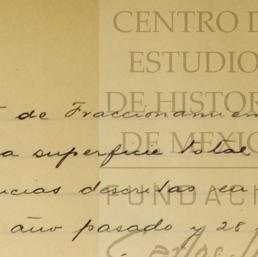 CENTRO D
ESTUDIO
DE HISTOR
DE MEXIC
FUNDAC
Carlos
de Fraccionamien
a superficie total
cias descritas en
año pasado y 28